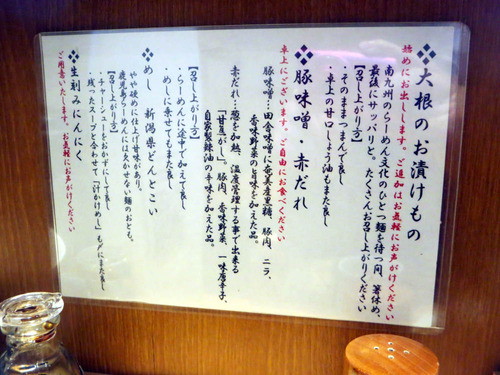 ❖大根のお漬けもの
始めにお出しします。ご追加はお気軽にお声がけください
南九州のらーめん文化のひとつ麺を待つ間、箸休め、
最後にサッパリと。たくさんお召し上がりください
【召し上がり方】
・そのままつまんで良し
・卓上の甘口しょう油もまた良し
❖豚味噌・赤だれ
卓上にございます。ご自由にお食べください
豚味噌…田舎味噌に奄美産黒糖、豚肉、ニラ、
香味野菜の旨味を加えた品。
赤だれ…葱を加熱、温度管理する事で出来る
「甘苦がし」。豚肉、香味野菜、一味唐辛子、
自家製辣油の辛味を加えた品
【召し上がり方】
・らーめんに途中で加えて良し
・めしに乗せてもまた良し
❖めし 新潟県どんとこい
やや硬めに仕上げ甘味があり。
鹿児島らーめんには欠かせない麺のおとも。
【召し上がり方】
・チャーシューをおかずにして良し
・残ったスープと合わせて「汁かけめし」もまた良し
❖生刻みにんにく
ご用意いたします。お気軽にお声がけください